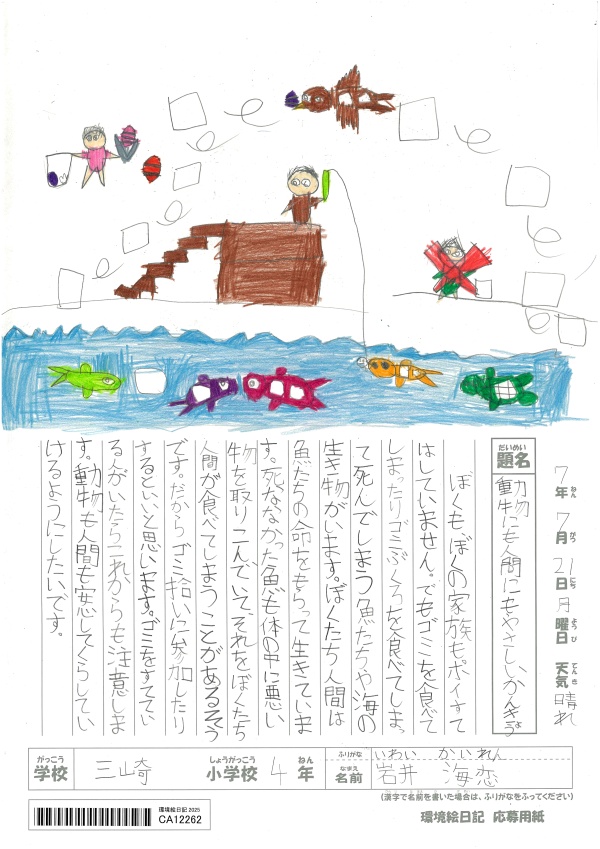 7年 7月 21日 月曜日 天気 晴れ
ねん がつ にち ようび てんき
だいめい
題名
動物にも人間にもやさしいかんきょう
ぼくもぼくの家族もポイすて
はしていません。でもゴミを食べて
しまったりゴミぶくろを食べてしまっ
て死んでしまう魚たちや海の
生き物がいます。ぼくたち人間は
魚たちの命をもらって生きていま
す。死ななかった魚も体の中に悪い
物を取りこんでいて、それをぼくたち
人間が食べてしまうことがあるそう
です。だからゴミ拾いに参加したり
するといいと思います。ゴミをすててい
る人がいたらこれからも注意しま
す。動物も人間も安心してくらしてい
けるようにしたいです。
がっこう
学校
三崎
しょうがっこう
小学校
4
ねん
年
ふりがな
いわい かいれん
なまえ
名前
岩井 海恋
(漢字で名前を書いた場合は、ふりがなをふってください)
環境絵日記 2025
CA12262
環境絵日記 応募用紙